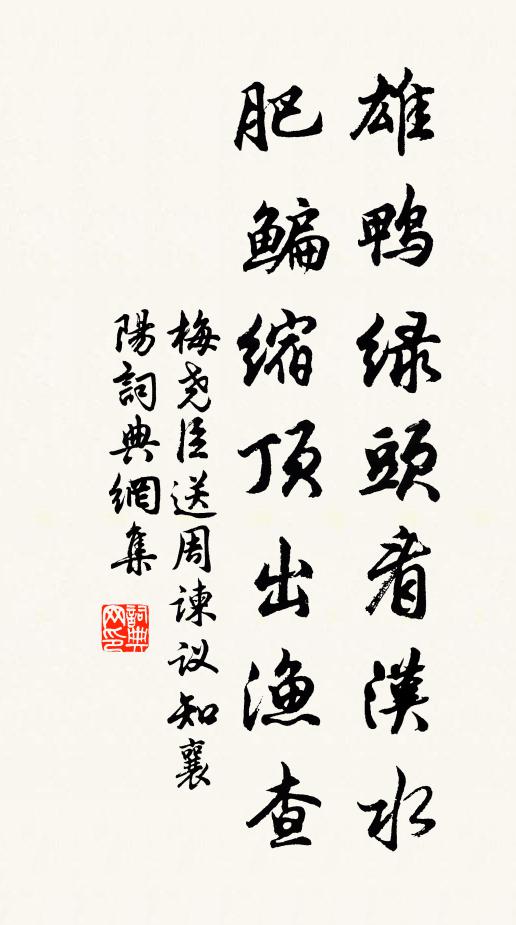 雄鸭绿頭看漢水
肥鳊缩顶出漁查
梅尧臣送周諫议知襄
陽詞典網集
詞典
网印